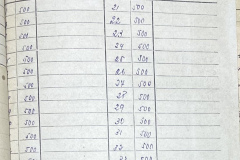 500 21 500
500 22 500
500 23 500
500 24 500
500 25 500
500 26 500
500 27 500
500 28 500
500 29 500
500 30 500
500 31 500
500 500
500